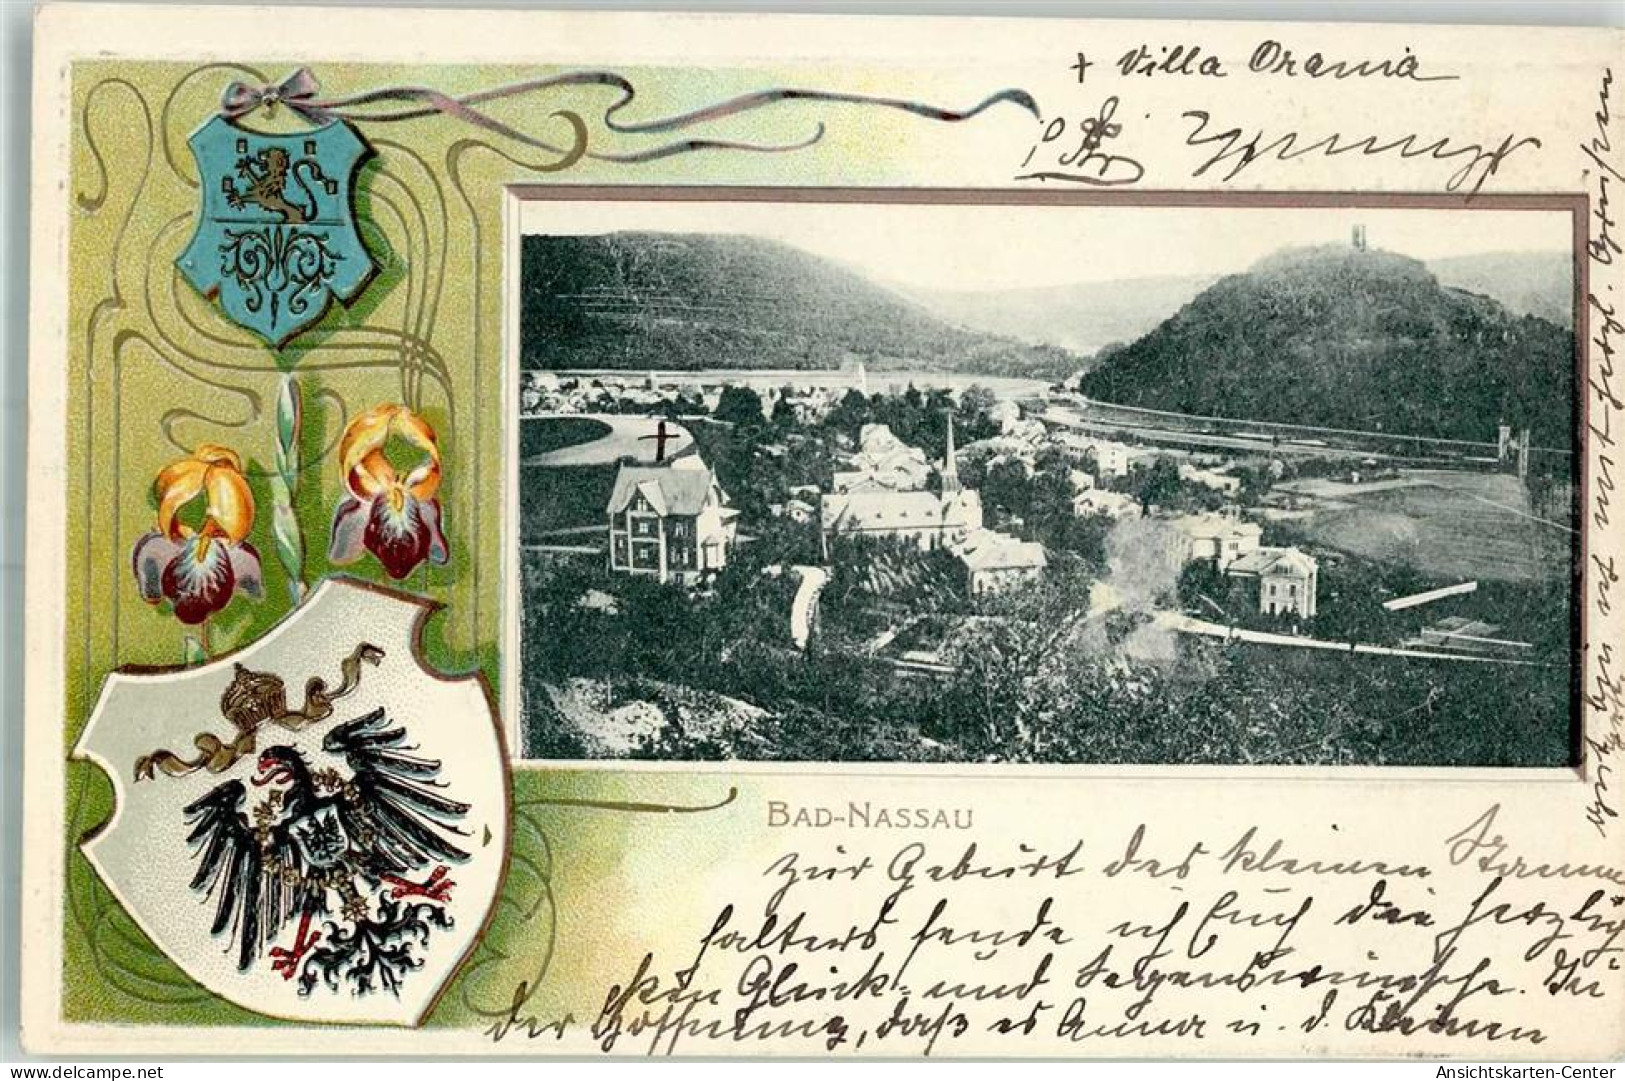 + Villa Orania
BAD-NASSAU
Zur Geburt des kleinen Stamm
halters sende ich Euch die herzlich
sten Glück- und Segenswünsche. In
der Hoffnung, daß es Anna u. d. Kleinen
gut bin ich mit herzl. Grüßen
www.oldthing.de
Ansichtskarten-Center